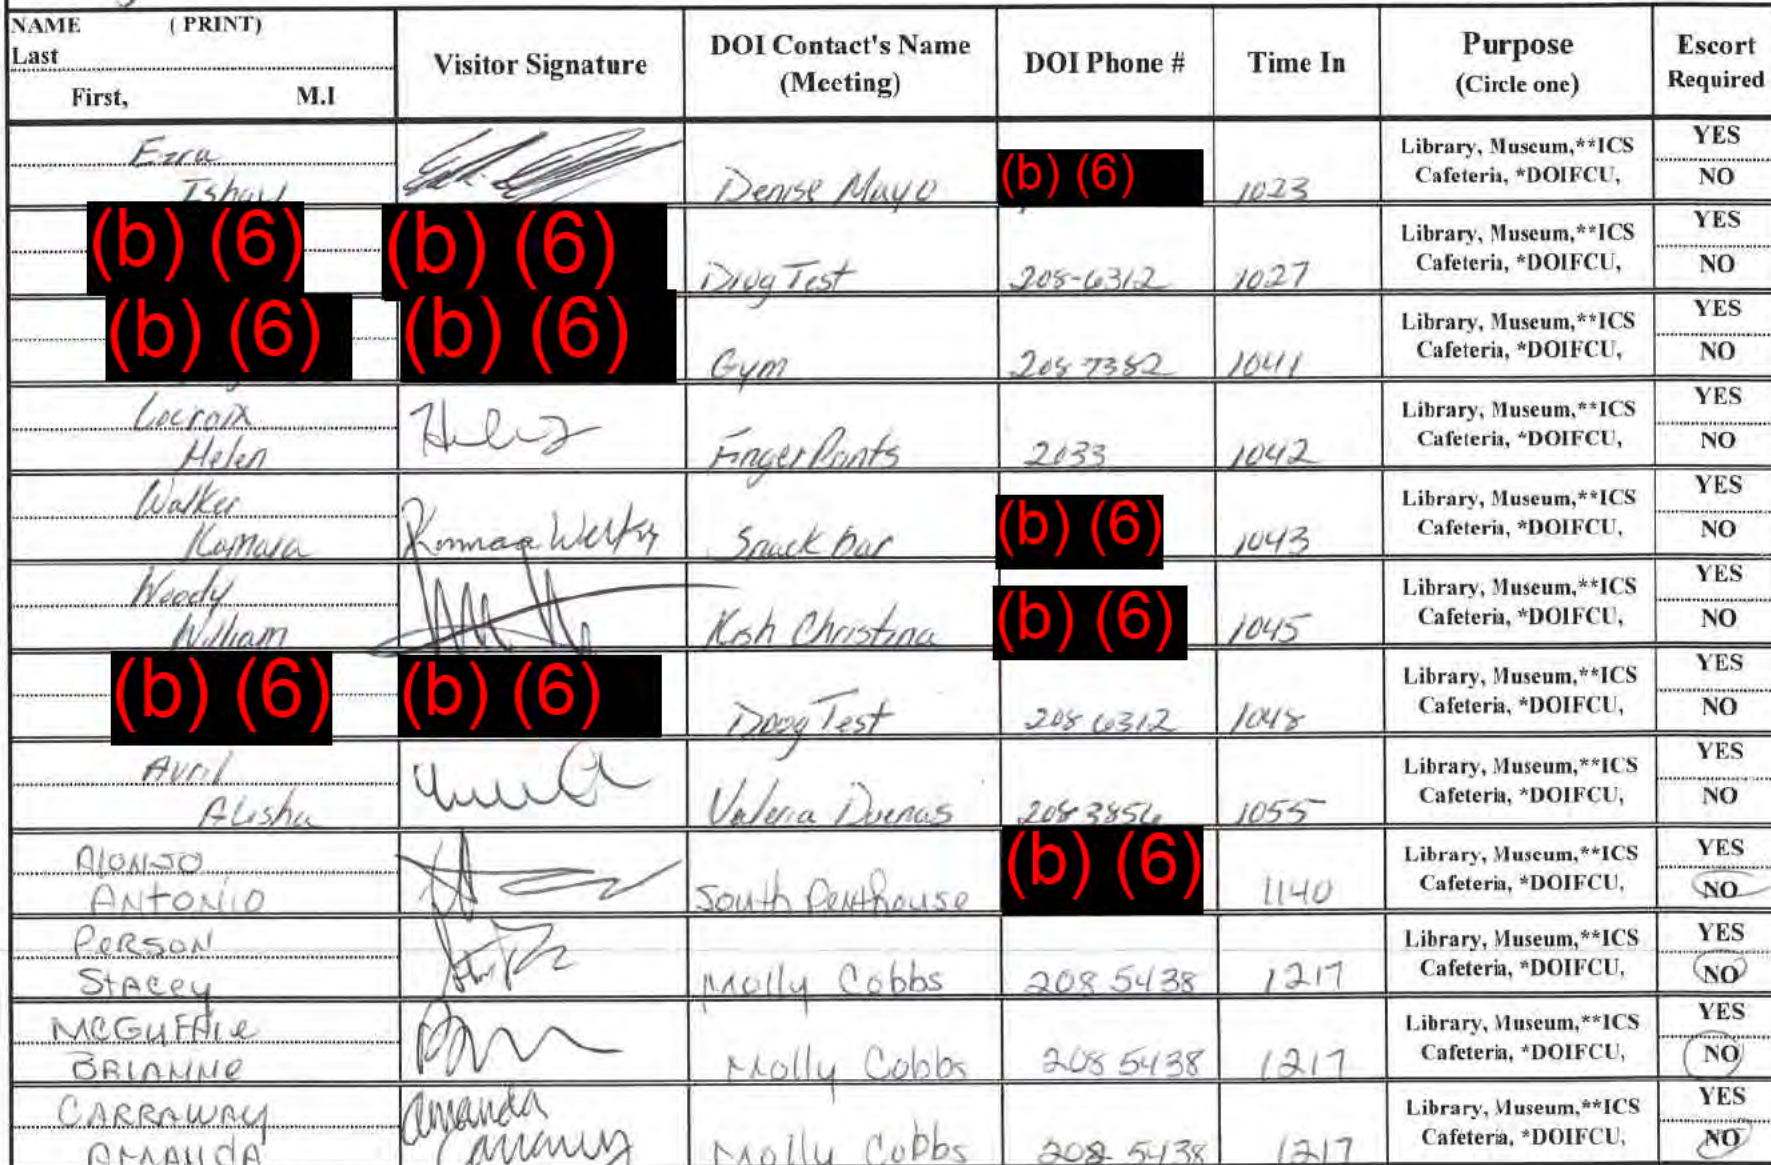 NAME ( PRINT)
Last
First, M.I
Visitor Signature
DOI Contact's Name
(Meeting)
DOI Phone #
Time In
Purpose
(Circle one)
Escort
Required
Ezra
Ishau
Denise Mayo
(b) (6)
1023
Library, Museum,**ICS
Cafeteria, *DOIFCU,
YES
NO
(b) (6)
(b) (6)
Drug Test
208-6312
1027
Library, Museum,**ICS
Cafeteria, *DOIFCU,
YES
NO
(b) (6)
(b) (6)
Gym
208 7382
1041
Library, Museum,**ICS
Cafeteria, *DOIFCU,
YES
NO
Locroix
Helen
Finger Prints
2033
1042
Library, Museum,**ICS
Cafeteria, *DOIFCU,
YES
NO
Walker
Kamara
Snack bar
(b) (6)
1043
Library, Museum,**ICS
Cafeteria, *DOIFCU,
YES
NO
Woody
William
Kosh Christina
(b) (6)
1045
Library, Museum,**ICS
Cafeteria, *DOIFCU,
YES
NO
(b) (6)
(b) (6)
Drug Test
208 6312
1048
Library, Museum,**ICS
Cafeteria, *DOIFCU,
YES
NO
Avril
Alisha
Valeria Duenas
208 3856
1055
Library, Museum,**ICS
Cafeteria, *DOIFCU,
YES
NO
Alonso
ANTONIO
South Penthouse
(b) (6)
1140
Library, Museum,**ICS
Cafeteria, *DOIFCU,
YES
NO
PERSON
Stacey
Molly Cobbs
208 5438
1217
Library, Museum,**ICS
Cafeteria, *DOIFCU,
YES
NO
McGuffie
BRIANNE
Molly Cobbs
208 5438
1217
Library, Museum,**ICS
Cafeteria, *DOIFCU,
YES
NO
CARRAWAY
AMANDA
Amanda
Carraway
Molly Cobbs
208 5438
1217
Library, Museum,**ICS
Cafeteria, *DOIFCU,
YES
NO